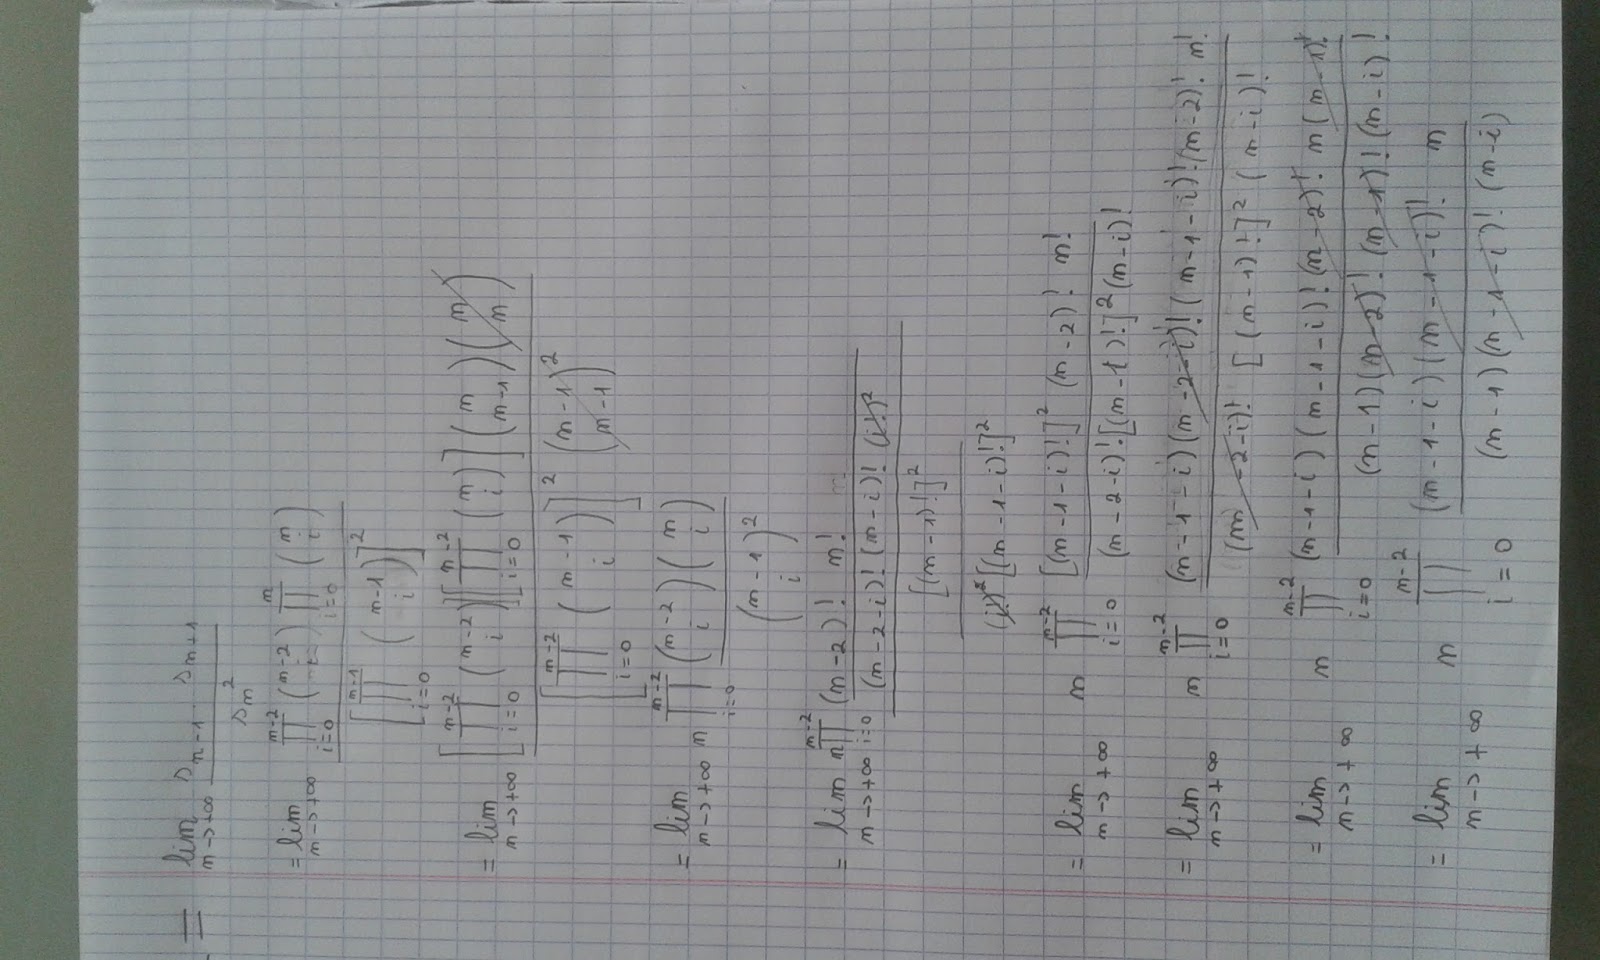 = lim_{n→+∞} \frac{s_{n-1} s_{n+1}}{s_n^2}
= lim_{n→+∞} \frac{∏_{i=0}^{n-2} \binom{n-2}{i} ∏_{i=0}^{n} \binom{n}{i}}{[∏_{i=0}^{n-1} \binom{n-1}{i}]^2}
= lim_{n→+∞} \frac{[∏_{i=0}^{n-2} \binom{n-2}{i}][∏_{i=0}^{n-2} \binom{n}{i}] \binom{n}{n-1} \binom{n}{n}}{[∏_{i=0}^{n-2} \binom{n-1}{i}]^2 \binom{n-1}{n-1}^2}
= lim_{n→+∞} n ∏_{i=0}^{n-2} \frac{\binom{n-2}{i} \binom{n}{i}}{\binom{n-1}{i}^2}
= lim_{n→+∞} n ∏_{i=0}^{n-2} \frac{\frac{(n-2)! n!}{(n-2-i)! (n-i)! (i!)^2}}{\frac{[(n-1)!]^2}{(i!)^2 [(n-1-i)!]^2}}
= lim_{n→+∞} n ∏_{i=0}^{n-2} \frac{[(n-1-i)!]^2 (n-2)! n!}{(n-2-i)! [(n-1)!]^2 (n-i)!}
= lim_{n→+∞} n ∏_{i=0}^{n-2} \frac{(n-1-i)(n-2-i)! (n-1-i)! (n-2)! n!}{(n-2-i)! [(n-1)!]^2 (n-i)!}
= lim_{n→+∞} n ∏_{i=0}^{n-2} \frac{(n-1-i)(n-1-i)! (n-2)! n (n-1)!}{(n-1)(n-2)! (n-1)! (n-i)!}
= lim_{n→+∞} n ∏_{i=0}^{n-2} \frac{(n-1-i)(n-1-i)! n}{(n-1)(n-1-i)! (n-i)}